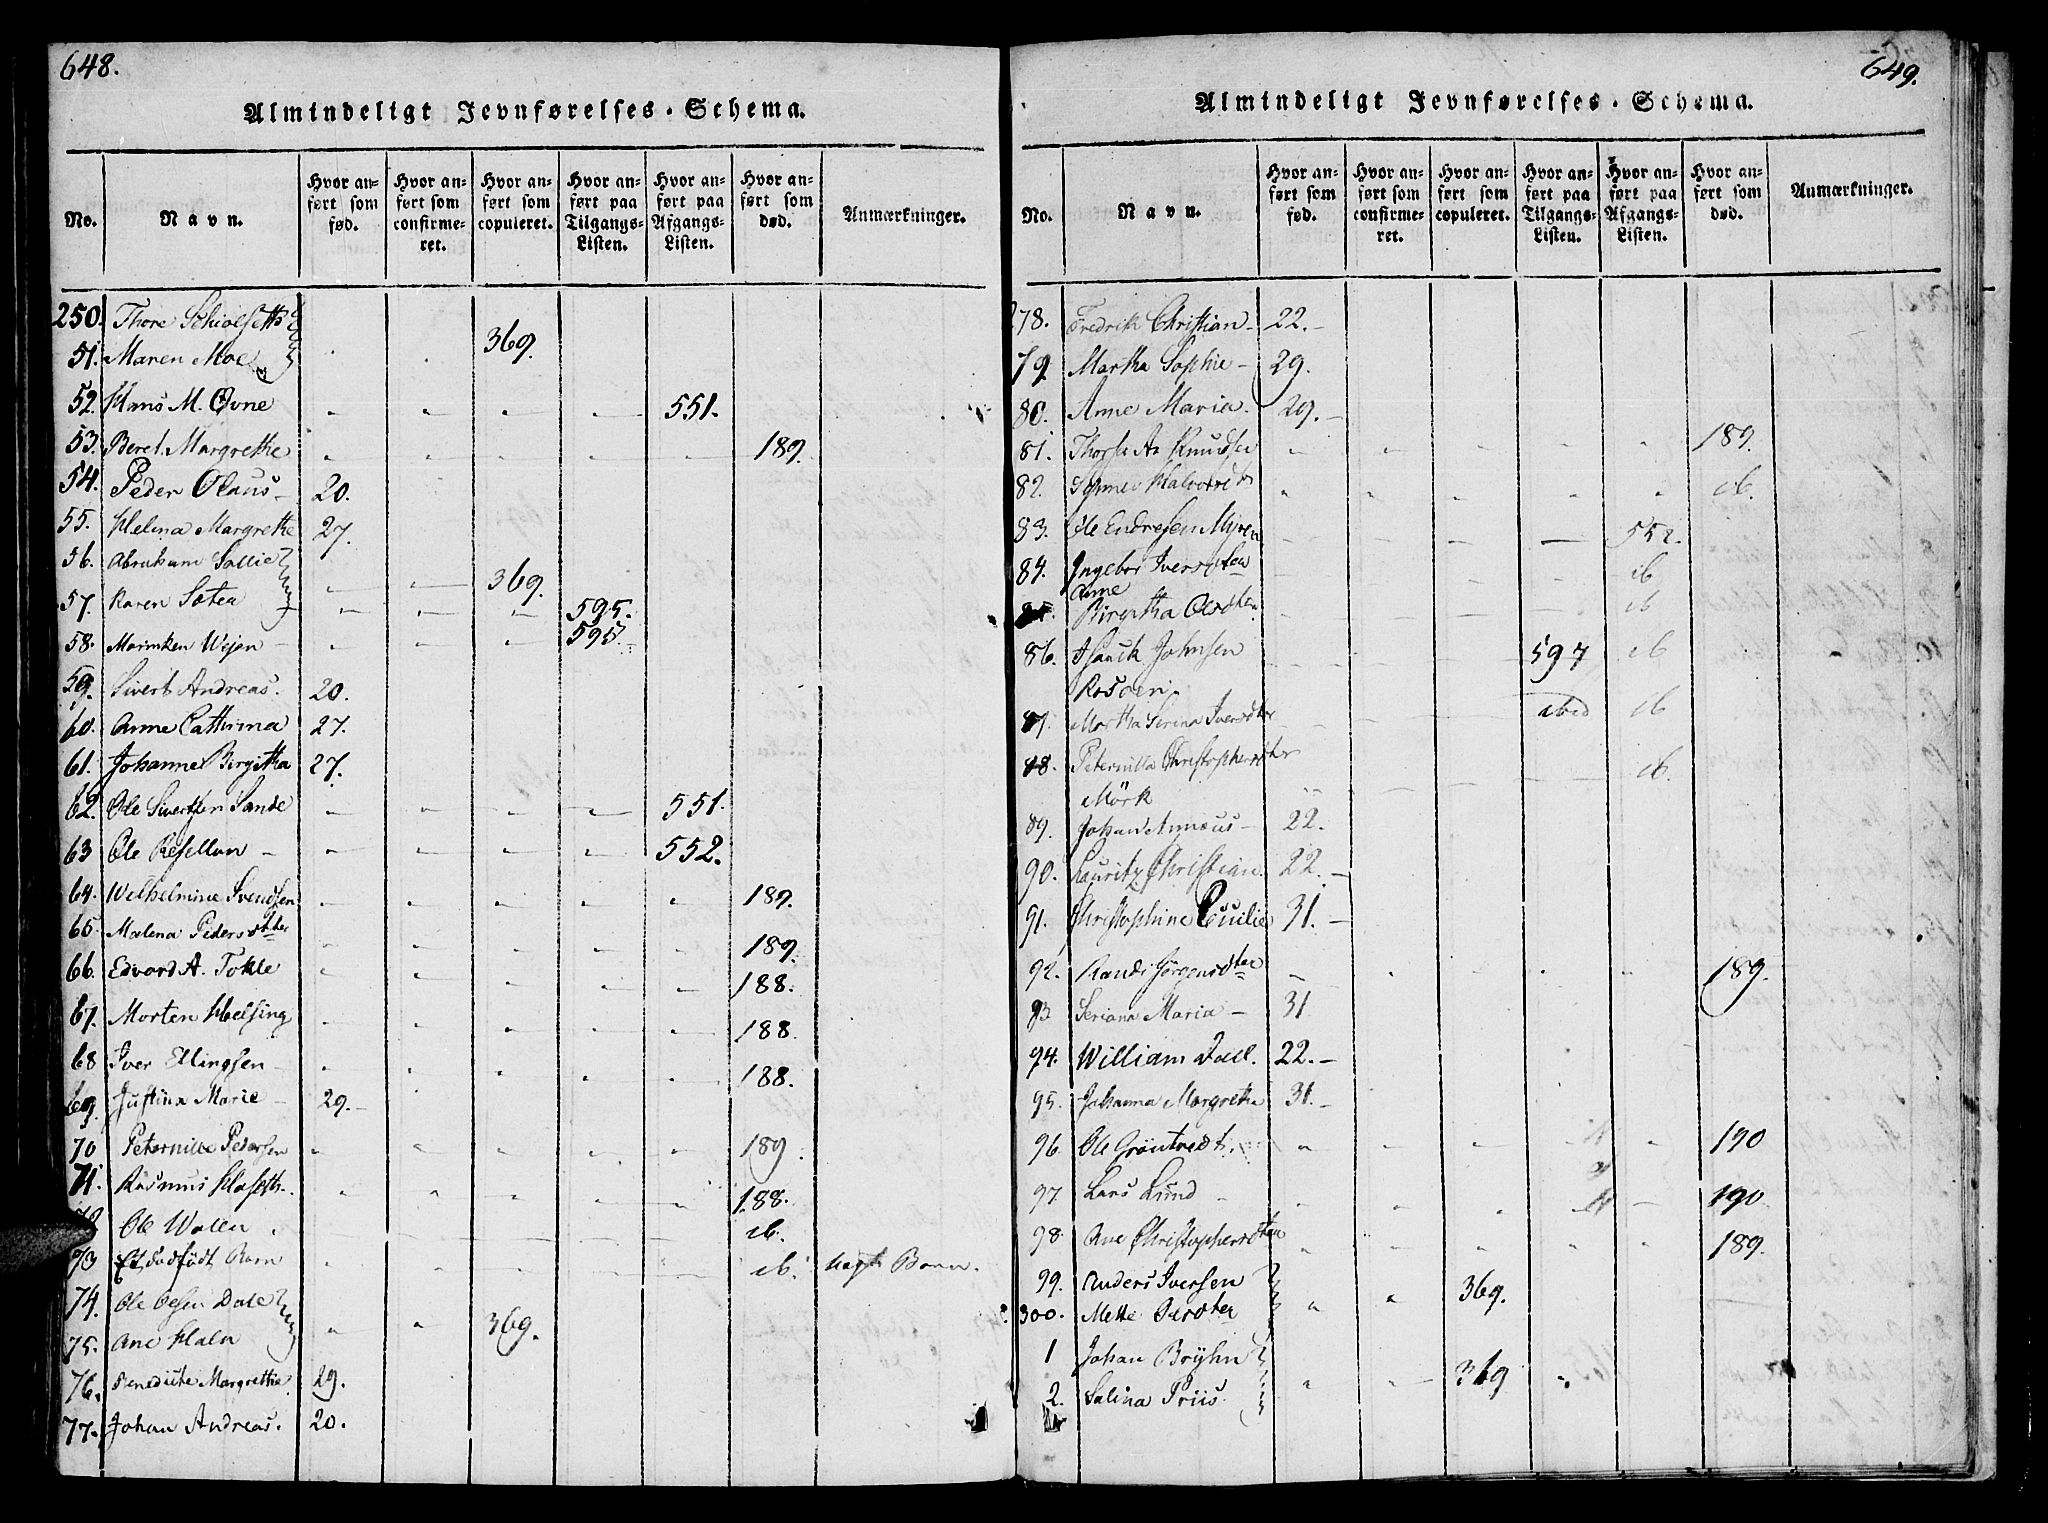 648.
Almindeligt Jevnførelses-Schema.
No. Navn. Hvor anført som fød. Hvor anført som confirmeret. Hvor anført som copuleret. Hvor anført paa Tilgangs-Listen. Hvor anført paa Afgangs-Listen. Hvor anført som død. Anmærkninger.
250. Thore
51. Maren Moe 369.
52. Hans M. Øvne - - - - 551.
53. Beret Margrethe - - - - - 189.
54. Peder Olaus - 20.
55. Helena Margrethe 27.
56. Abraham Sollie
57. Karen - - 369. 595.
58. Marinken Wejen - - - - 595.
59. Sivert Andreas. 20.
60. Anne Cathrina 27.
61. Johanne Birgitha 27.
62. Ole Sivertsen Sande - - - - 551.
63 Ole - - - - - 552.
64. Wilhelmine Svendsen - - - - - 189.
65. Malena Pedersdtter - - - - - 189.
66. Edvard A. Tokle - - - - - 188.
67. Morten Helsing - - - - - 188.
68 Iver Ellingsen - - - - - 188.
69. Justina Marie - 29. -
70 Peternille Pedersen - - - - - 189.
71. Rasmus - - - - - 188.
72 Ole Walen - - - - ib.
73 Et dødfødt Barn - - - - - ib. Barn.
74. Ole Olsen Dale
75. Ane - - 369.
76. Benedicte Margrethe 29.
77. Johan Andreas. 20.
649.
Almindeligt Jevnførelses-Schema.
No. Navn. Hvor anført som fød. Hvor anført som confirmeret. Hvor anført som copuleret. Hvor anført paa Tilgangs-Listen. Hvor anført paa Afgangs-Listen. Hvor anført som død. Anmærkninger.
278. Fredrik Christian - 22. -
79 Martha Sophie - 29.
80. Anne Maria. 29. -
81. Knudsen - - - - - 189.
82. - - - - - ib.
83. Ole Endresen Myren - - - - 552.
84. Ingebor Iversdter - - - - ib
Anne
85. Birgitha Olsdter - - - - ib
86. Isanck Johnsen - - - 597 ib
87. Martha Serina Iversdter - - - ibid ib
88. Peternilla Christophersdter - - - - ib.
Mörk
89. Johan Annæus - 22.
90. Lauritz Christian. 22. -
91. Christophine Cecilie 31. -
92. Randi Jörgensdter - - - - - 189.
93 Seriana Maria - 31
94. William Juell. 22. -
95. Johanna Margrethe 31. -
96. Ole - - - - 190
97 Lars Lund - - - - - 190
98. Ane Christophersdter - - - - - 189.
99. Anders Iversen
300. Mette - - 369.
1 Johan Brÿhn
2. Salina Friis. - - 369